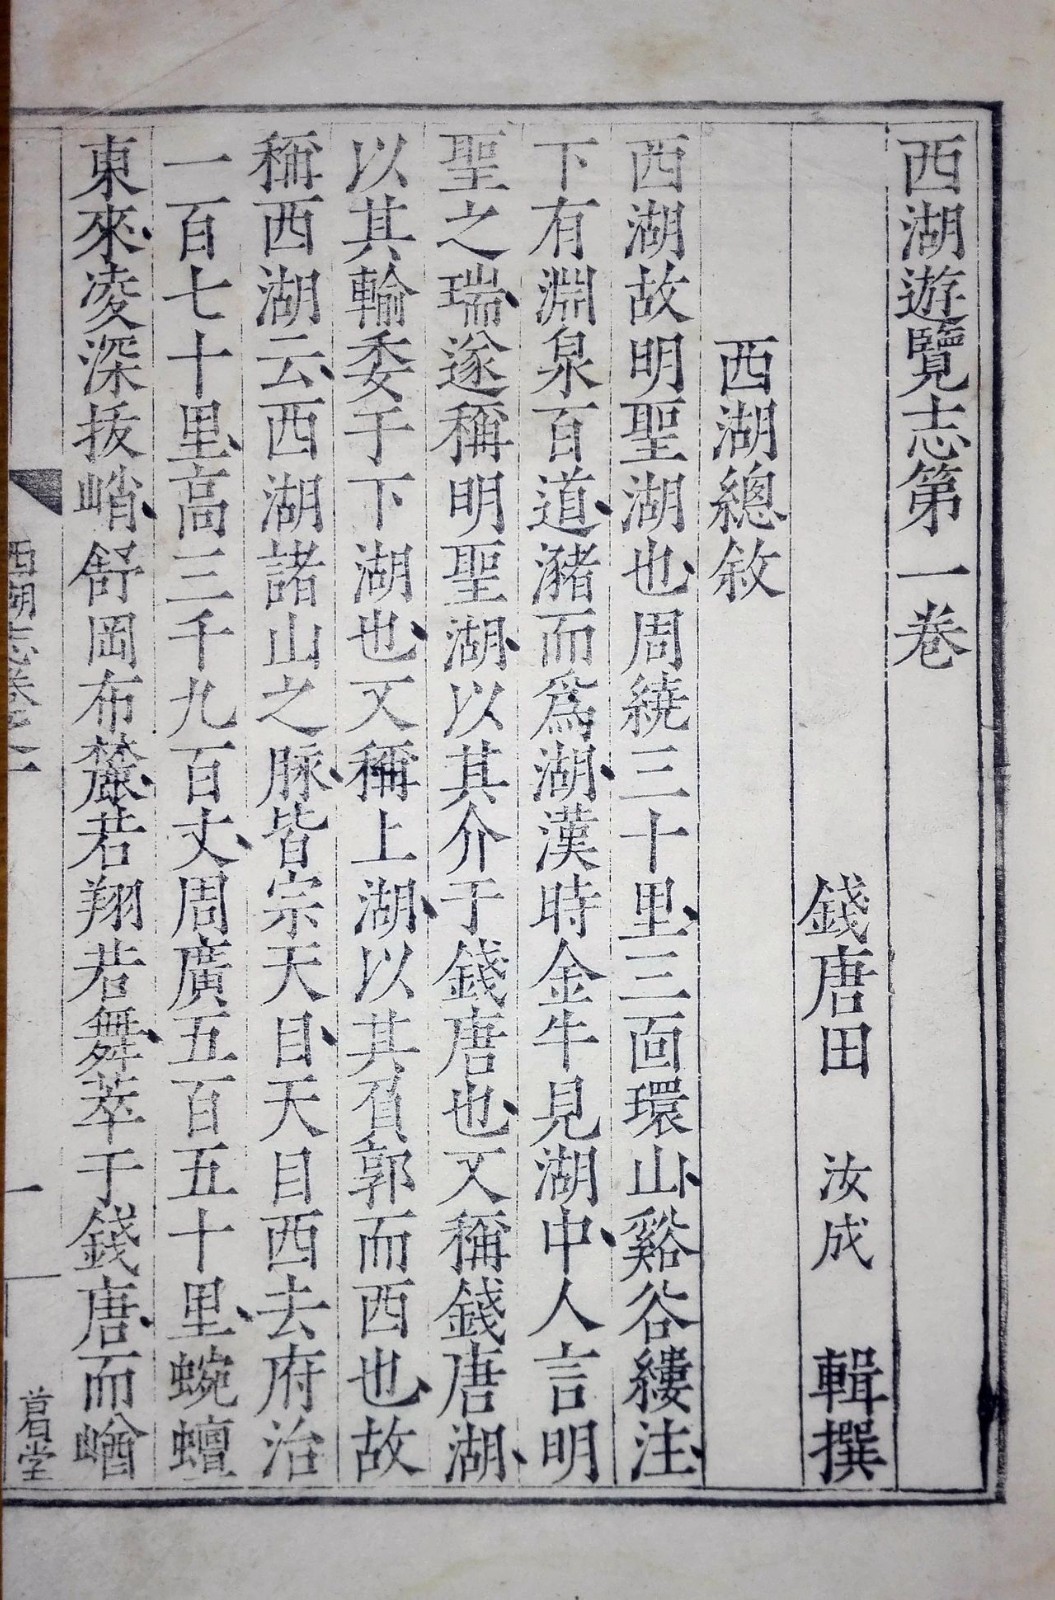 西湖遊覽志第一卷
錢唐田 汝成 輯撰
西湖總敘
西湖故明聖湖也周繞三十里三面環山谿谷縷注
下有淵泉百道瀦而為湖漢時金牛見湖中人言明
聖之瑞遂稱明聖湖以其介于錢唐也又稱錢唐湖
以其輸委于下湖也又稱上湖以其負郭而西也故
稱西湖云西湖諸山之脉皆宗天目天目西去府治
一百七十里高三千九百丈周廣五百五十里蜿蟺
東來凌深拔峭舒岡布麓若翔若舞萃于錢唐而崷
西湖志卷之一
一
堂